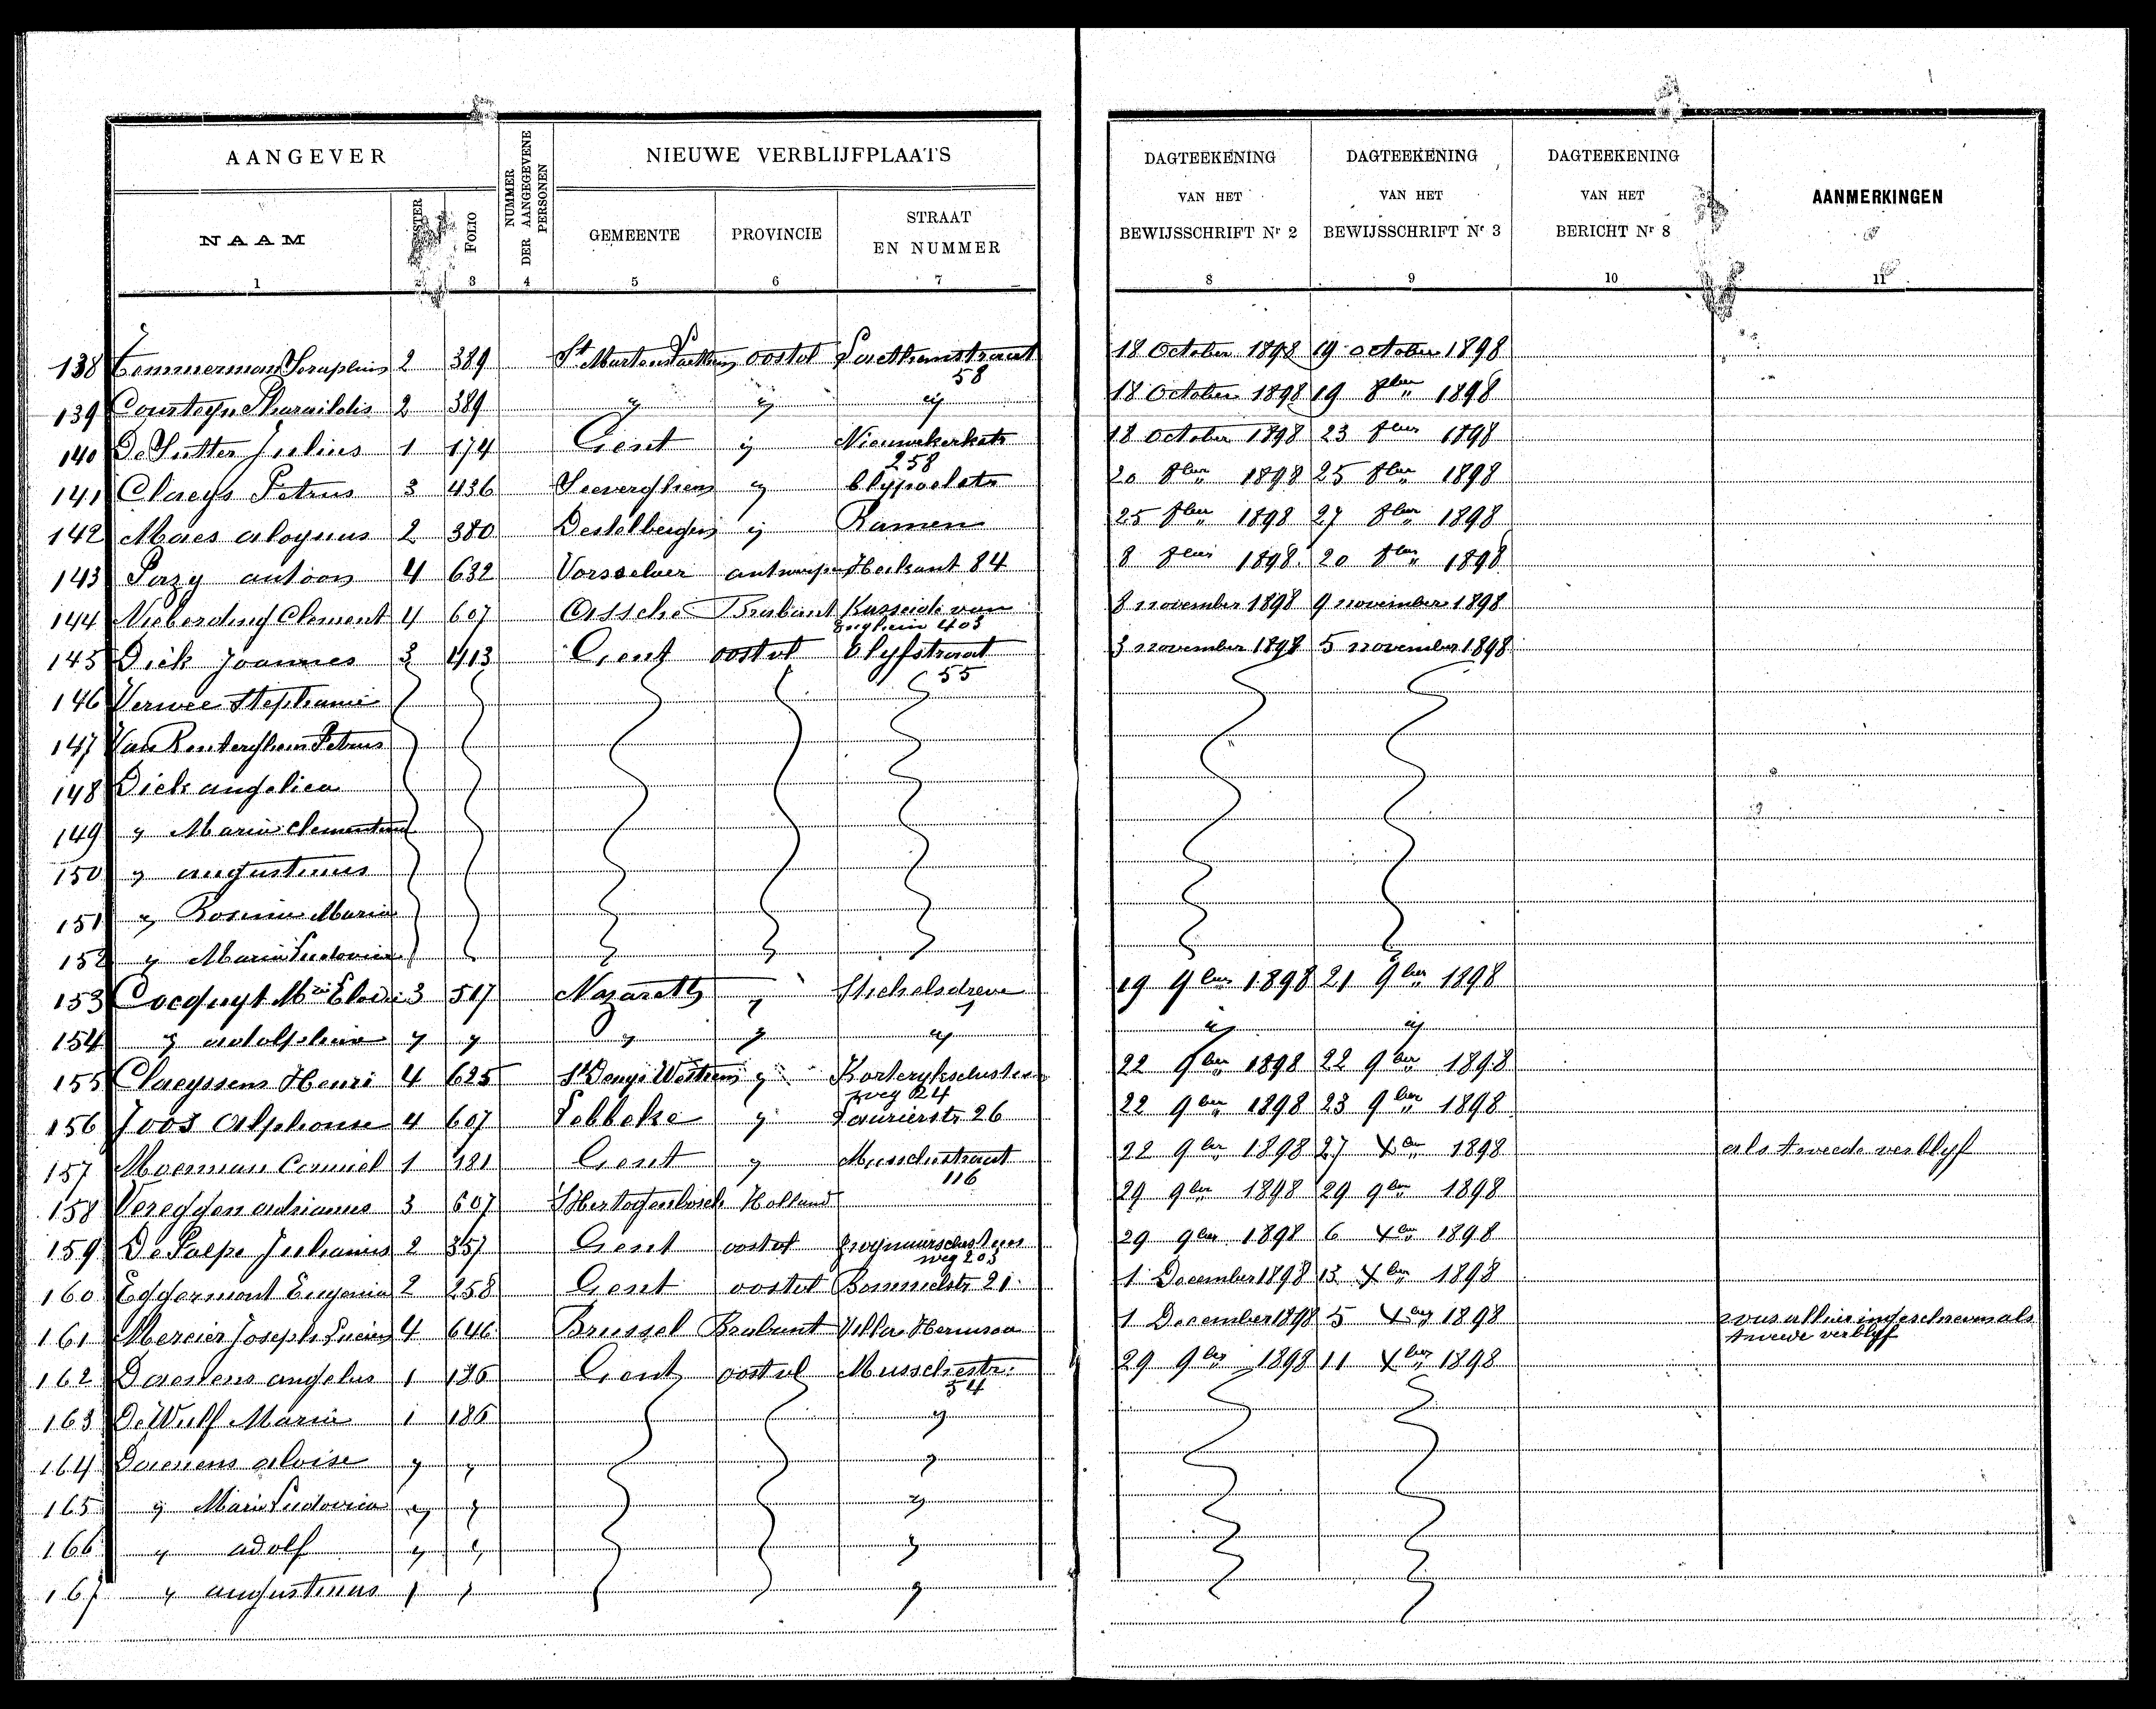 AANGEVER
NUMMER DER AANGEGEVENE PERSONEN
NIEUWE VERBLIJFPLAATS
DAGTEEKENING VAN HET BEWIJSSCHRIFT Nr 2
DAGTEEKENING VAN HET BEWIJSSCHRIFT Nr 3
DAGTEEKENING VAN HET BERICHT Nr 8
AANMERKINGEN
NAAM FOLIO GEMEENTE PROVINCIE STRAAT EN NUMMER
1 2 3 4 5 6 7 8 9 10 11
138 Temmerman Seraphin 2 389 St Martens Laethem oostvl Laethemstraat 58 18 October 1898 19 october 1898
139 Courteyn Pharaildis 2 389 " " " 18 October 1898 19 8ber 1898
140 De Sutter Julius 1 174 Gent " Nieuwekerkstr 258 18 October 1898 23 8ber 1898
141 Claeys Petrus 3 436 Seeverghem " 20 8ber 1898 25 8ber 1898
142 Maes aloysius 2 380 Destelbergen " Ramen 25 8ber 1898 27 8ber 1898
143 antoon 4 632 Vorsselaer antwerpen Heikant 84 8 8ber 1898 20 8ber 1898
144 Nieberding Clement 4 607 Assche Brabant Kasseide van Enghein 403 8 november 1898 9 november 1898
145 Dick Joannes 3 413 Gent oostvl Blyfstraat 55 3 november 1898 5 november 1898
146 Verwee Stephanie
147 Van Renterghem Petrus
148 Dick angelica
149 " Maria Clementina
150 " augustinus
151 " Rosina Maria
152 " Maria Ludovica
153 Cocquyt Mria Elodie 3 517 Nazareth " Stichelsdreve 19 9ber 1898 21 9ber 1898
154 " adolphine " " " " " " "
155 Claeyssens Henri 4 625 St Denys Westrem " Kortryksche steenweg 24 22 9ber 1898 22 9ber 1898
156 Joos Alphonse 4 607 Lebbeke " Laurierstr 26 22 9ber 1898 23 9ber 1898
157 Moerman Camiel 1 181 Gent " Musschestraat 116 22 9ber 1898 27 Xber 1898 als tweede verblyf
158 Vereggen adrianus 3 607 'SHertogenbosch Holland 29 9ber 1898 29 9ber 1898
159 De Paepe Julianus 2 357 Gent oostvl Zwynaardschesteenweg 203 29 9ber 1898 6 Xber 1898
160 Eggermont Eugenia 2 258 Gent oostvl Bommelstr 21 1 December 1898 13 Xber 1898
161 Mercier Joseph Lucien 4 646 Brussel Brabant Villa Hermosa 1 December 1898 5 Xber 1898 was alhier ingeschreven als tweede verblyf
162 Daenens angelus 1 186 Gent oostvl Musschestr: 54 29 9ber 1898 11 Xber 1898
163 De Wulf Maria 1 186 "
164 Daenens aloise " " "
165 " Maria Ludovica " " "
166 " adolf " " "
167 " augustinus " " "